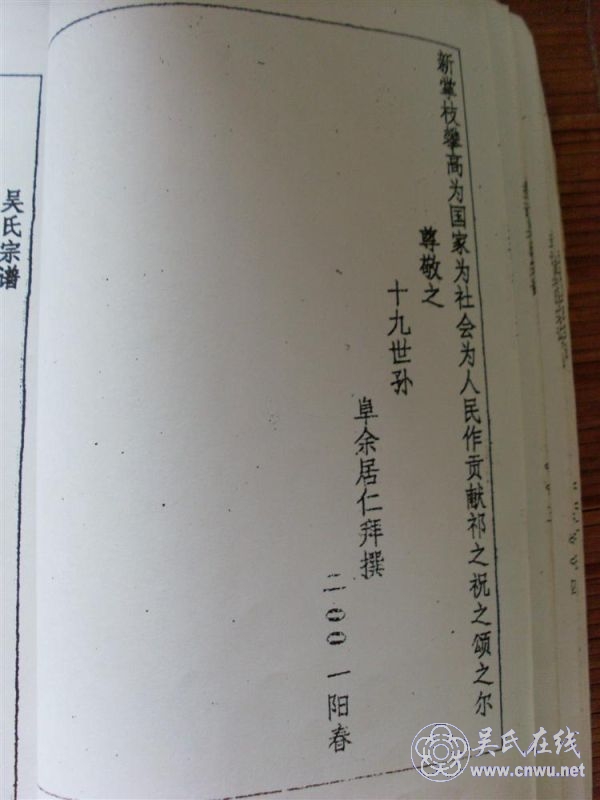 新掌枝攀高为国家为社会为人民作贡献祁之祝之颂之尔
尊敬之
十九世孙
阜余居仁拜撰
二00一阳春
吴氏宗谱
吴氏在线
www.cnwu.net